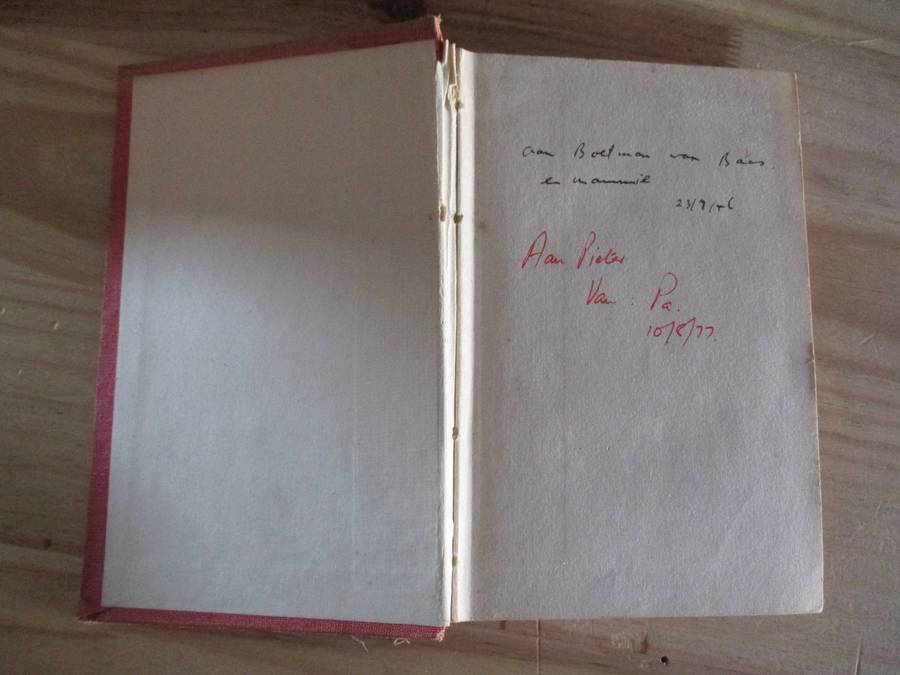 aan Boetman van Baas.
en mammie
23/9/46
Aan Pieter
Van: Pa.
10/8/77.